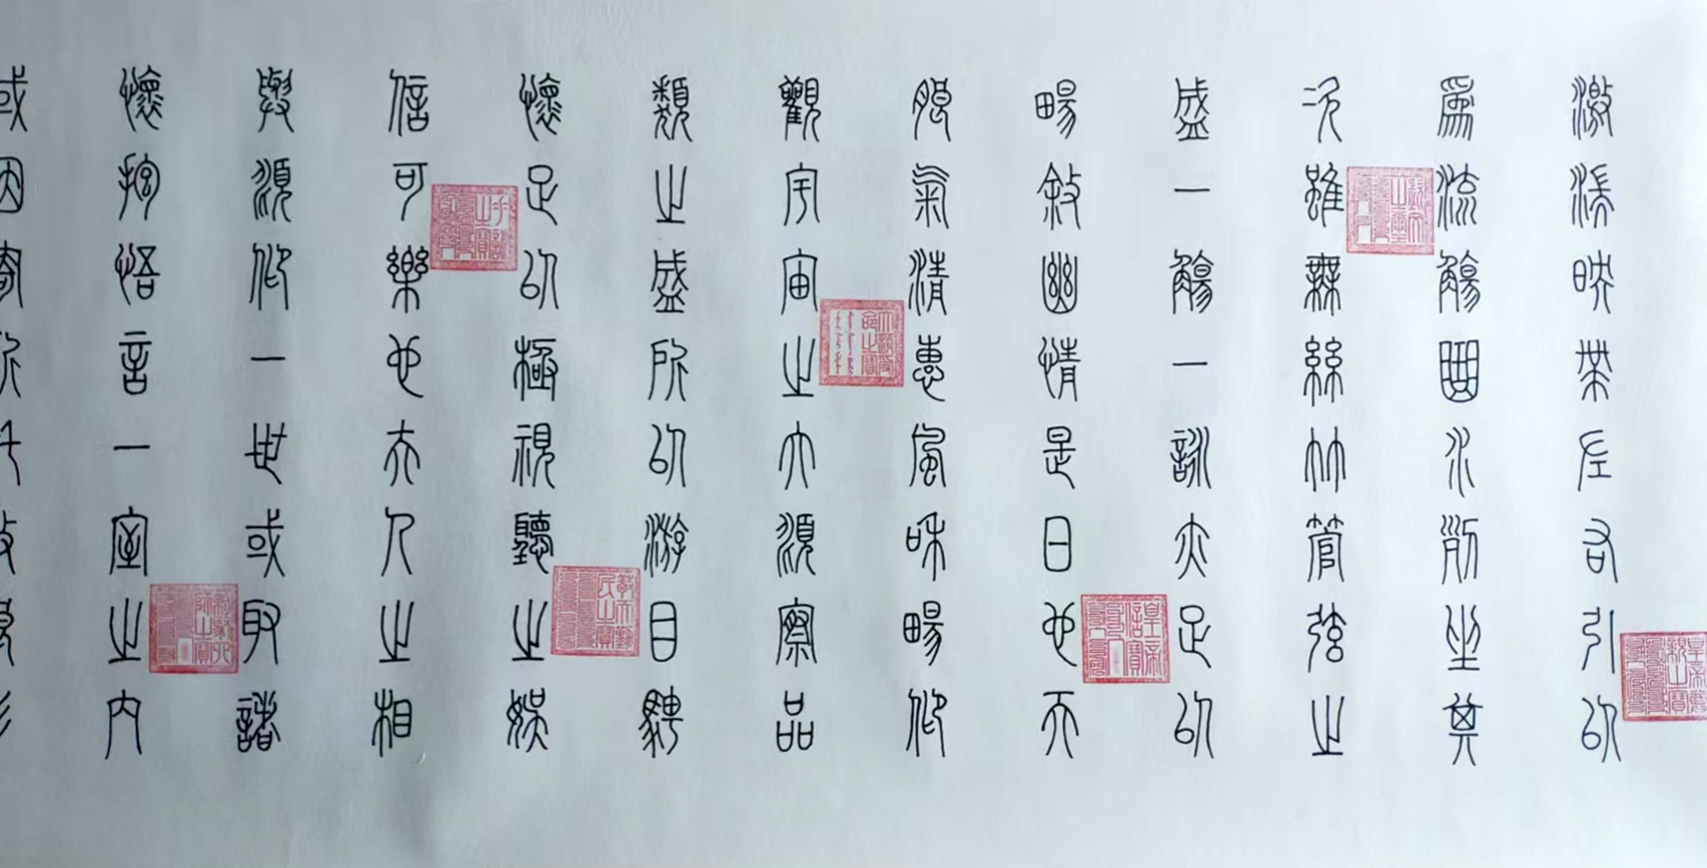 激湍映帶左右引以
為流觴曲水列坐其
次雖無絲竹管弦之
盛一觴一詠亦足以
暢敘幽情是日也天
朗氣清惠風和暢仰
觀宇宙之大俯察品
類之盛所以游目騁
懷足以極視聽之娛
信可樂也夫人之相
與俯仰一世或取諸
懷抱悟言一室之內
或因寄所托放浪形
皇帝信寶